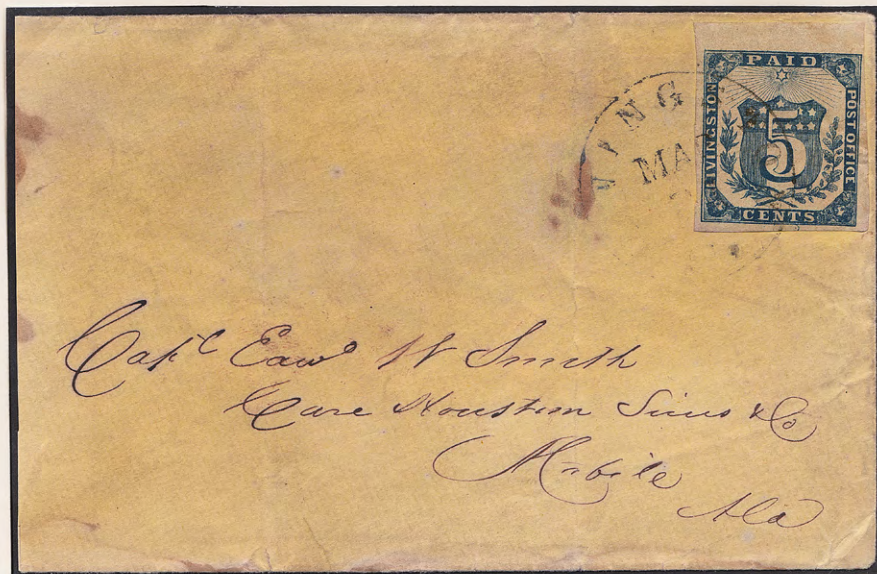 PAID
LIVINGSTON
POST OFFICE
5
CENTS
VING
MA
Capt Edwd W Smith
Care Houston Sims & Co
Mobile
Ala